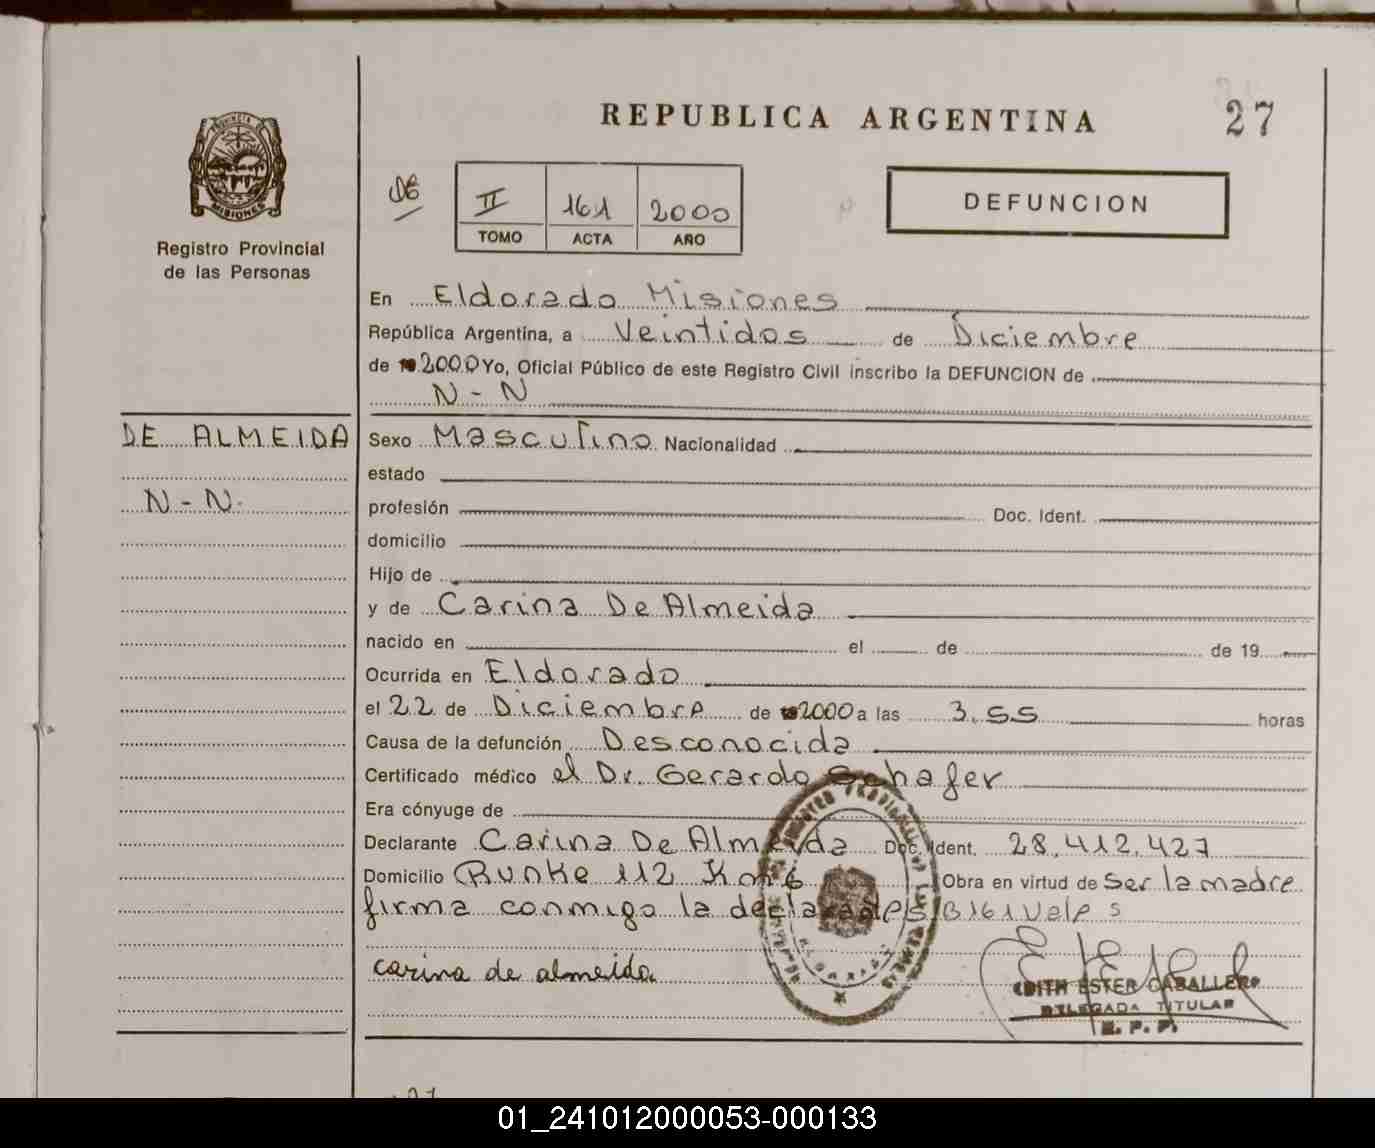 REPUBLICA ARGENTINA
27
PROVINCIA DE
MISIONES
Registro Provincial
de las Personas
II 161 2000
TOMO ACTA AÑO
DEFUNCION
En Eldorado Misiones
República Argentina, a Veintidos de Diciembre
de 2000 Yo, Oficial Público de este Registro Civil inscribo la DEFUNCION de
N - N
DE ALMEIDA
N - N.
Sexo Masculino Nacionalidad
estado
profesión Doc. Ident.
domicilio
Hijo de
y de Carina De Almeida
nacido en el de de 19
Ocurrida en Eldorado
el 22 de Diciembre de 2000 a las 3.55 horas
Causa de la defunción Desconocida
Certificado médico el Dr. Gerardo Schafer
Era cónyuge de
Declarante Carina De Almeida Doc. Ident. 28.412.427
Domicilio Runke 112 Km 6 Obra en virtud de Ser la madre
firma conmigo la declarante S/B 161 Vale
carina de almeida
EDITH ESTER CABALLERO
DELEGADA TITULAR
R. P. P.
ELDORADO
01_241012000053-000133